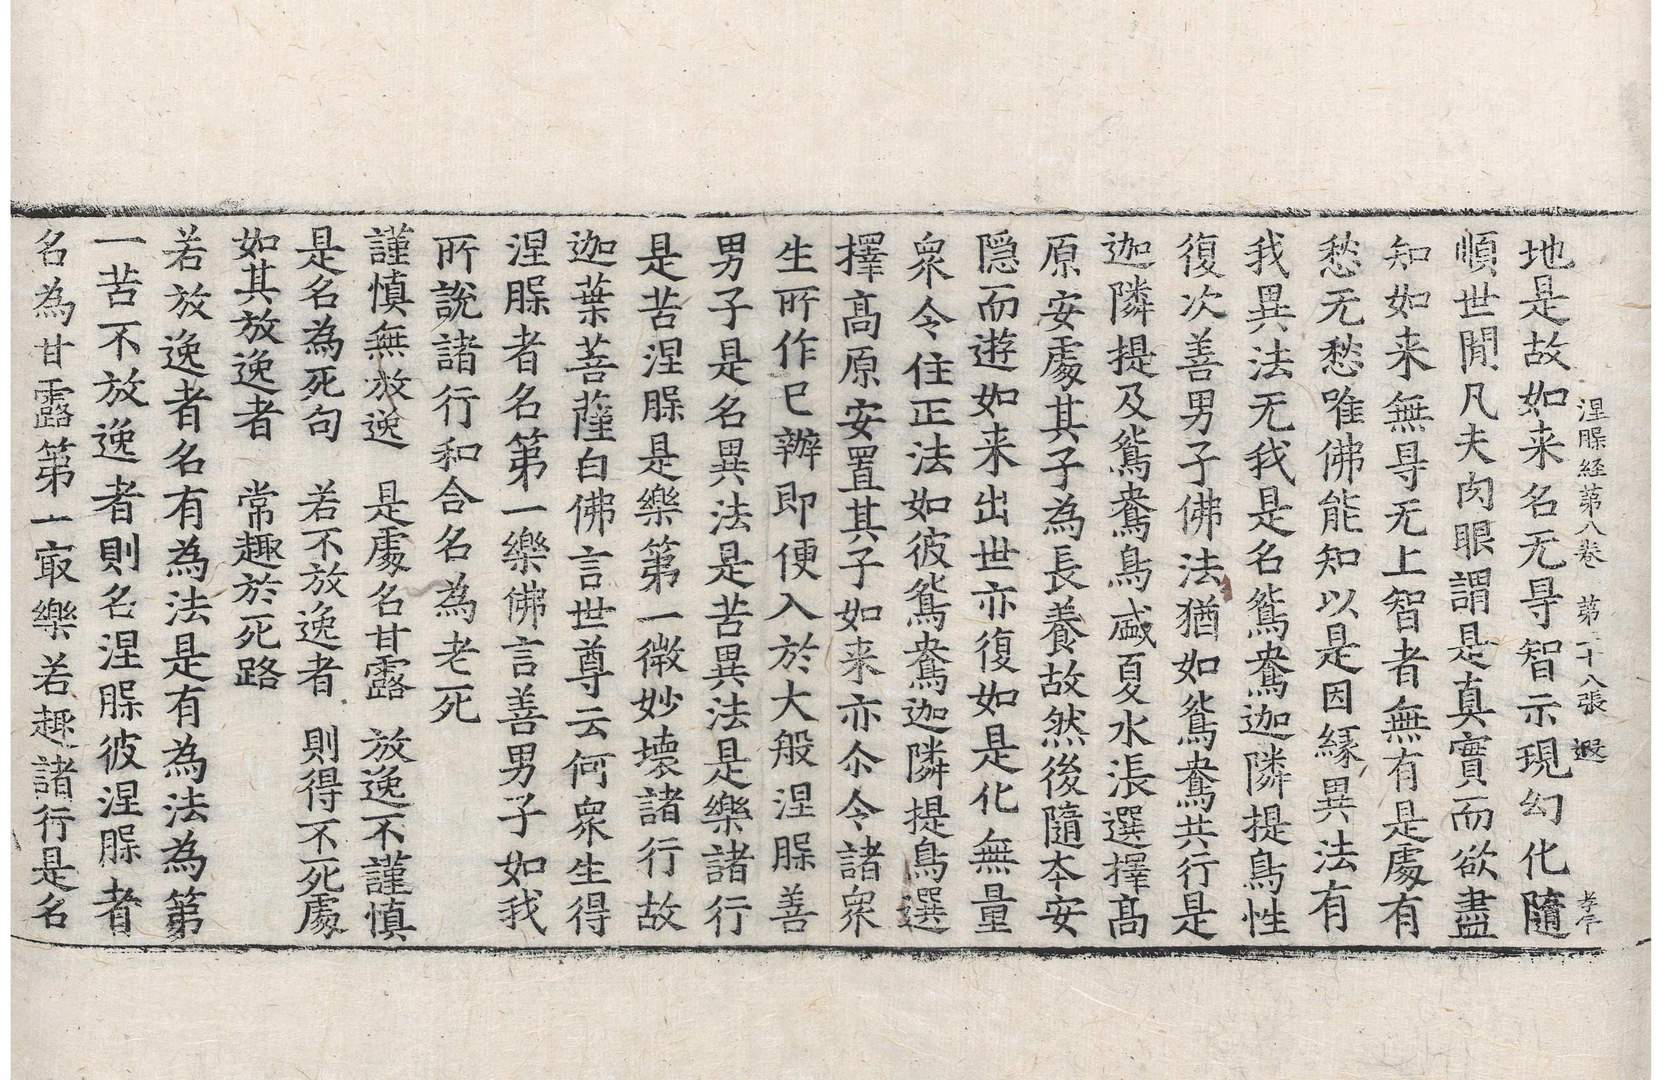 涅脲経苐八巻 苐二十八張 遐 孝年
地是故如来名无㝵智示現幻化隨
順世閒凡夫肉眼謂是真實而欲盡
知如来無㝵无上智者無有是處有
愁无愁唯佛能知以是因緣異法有
我異法无我是名鴛鴦迦隣提鳥性
復次善男子佛法猶如鴛鴦共行是
迦隣提及鴛鴦鳥盛夏水漲選擇髙
原安處其子為長養故然後隨本安
隠而遊如来出世亦復如是化無量
衆令住正法如彼鴛鴦迦隣提鳥選
擇髙原安置其子如来亦尒令諸衆
生所作已辦即便入於大般涅脲善
男子是名異法是苦異法是樂諸行
是苦涅脲是樂第一微妙壊諸行故
迦葉菩薩白佛言世尊云何衆生得
涅脲者名第一樂佛言善男子如我
所說諸行和合名為老死
謹慎無放逸 是處名甘露 放逸不謹慎
是名為死句 若不放逸者 則得不死處
如其放逸者 常趣於死路
若放逸者名有為法是有為法為第
一苦不放逸者則名涅脲彼涅脲者
名為甘露第一㝡樂若趣諸行是名